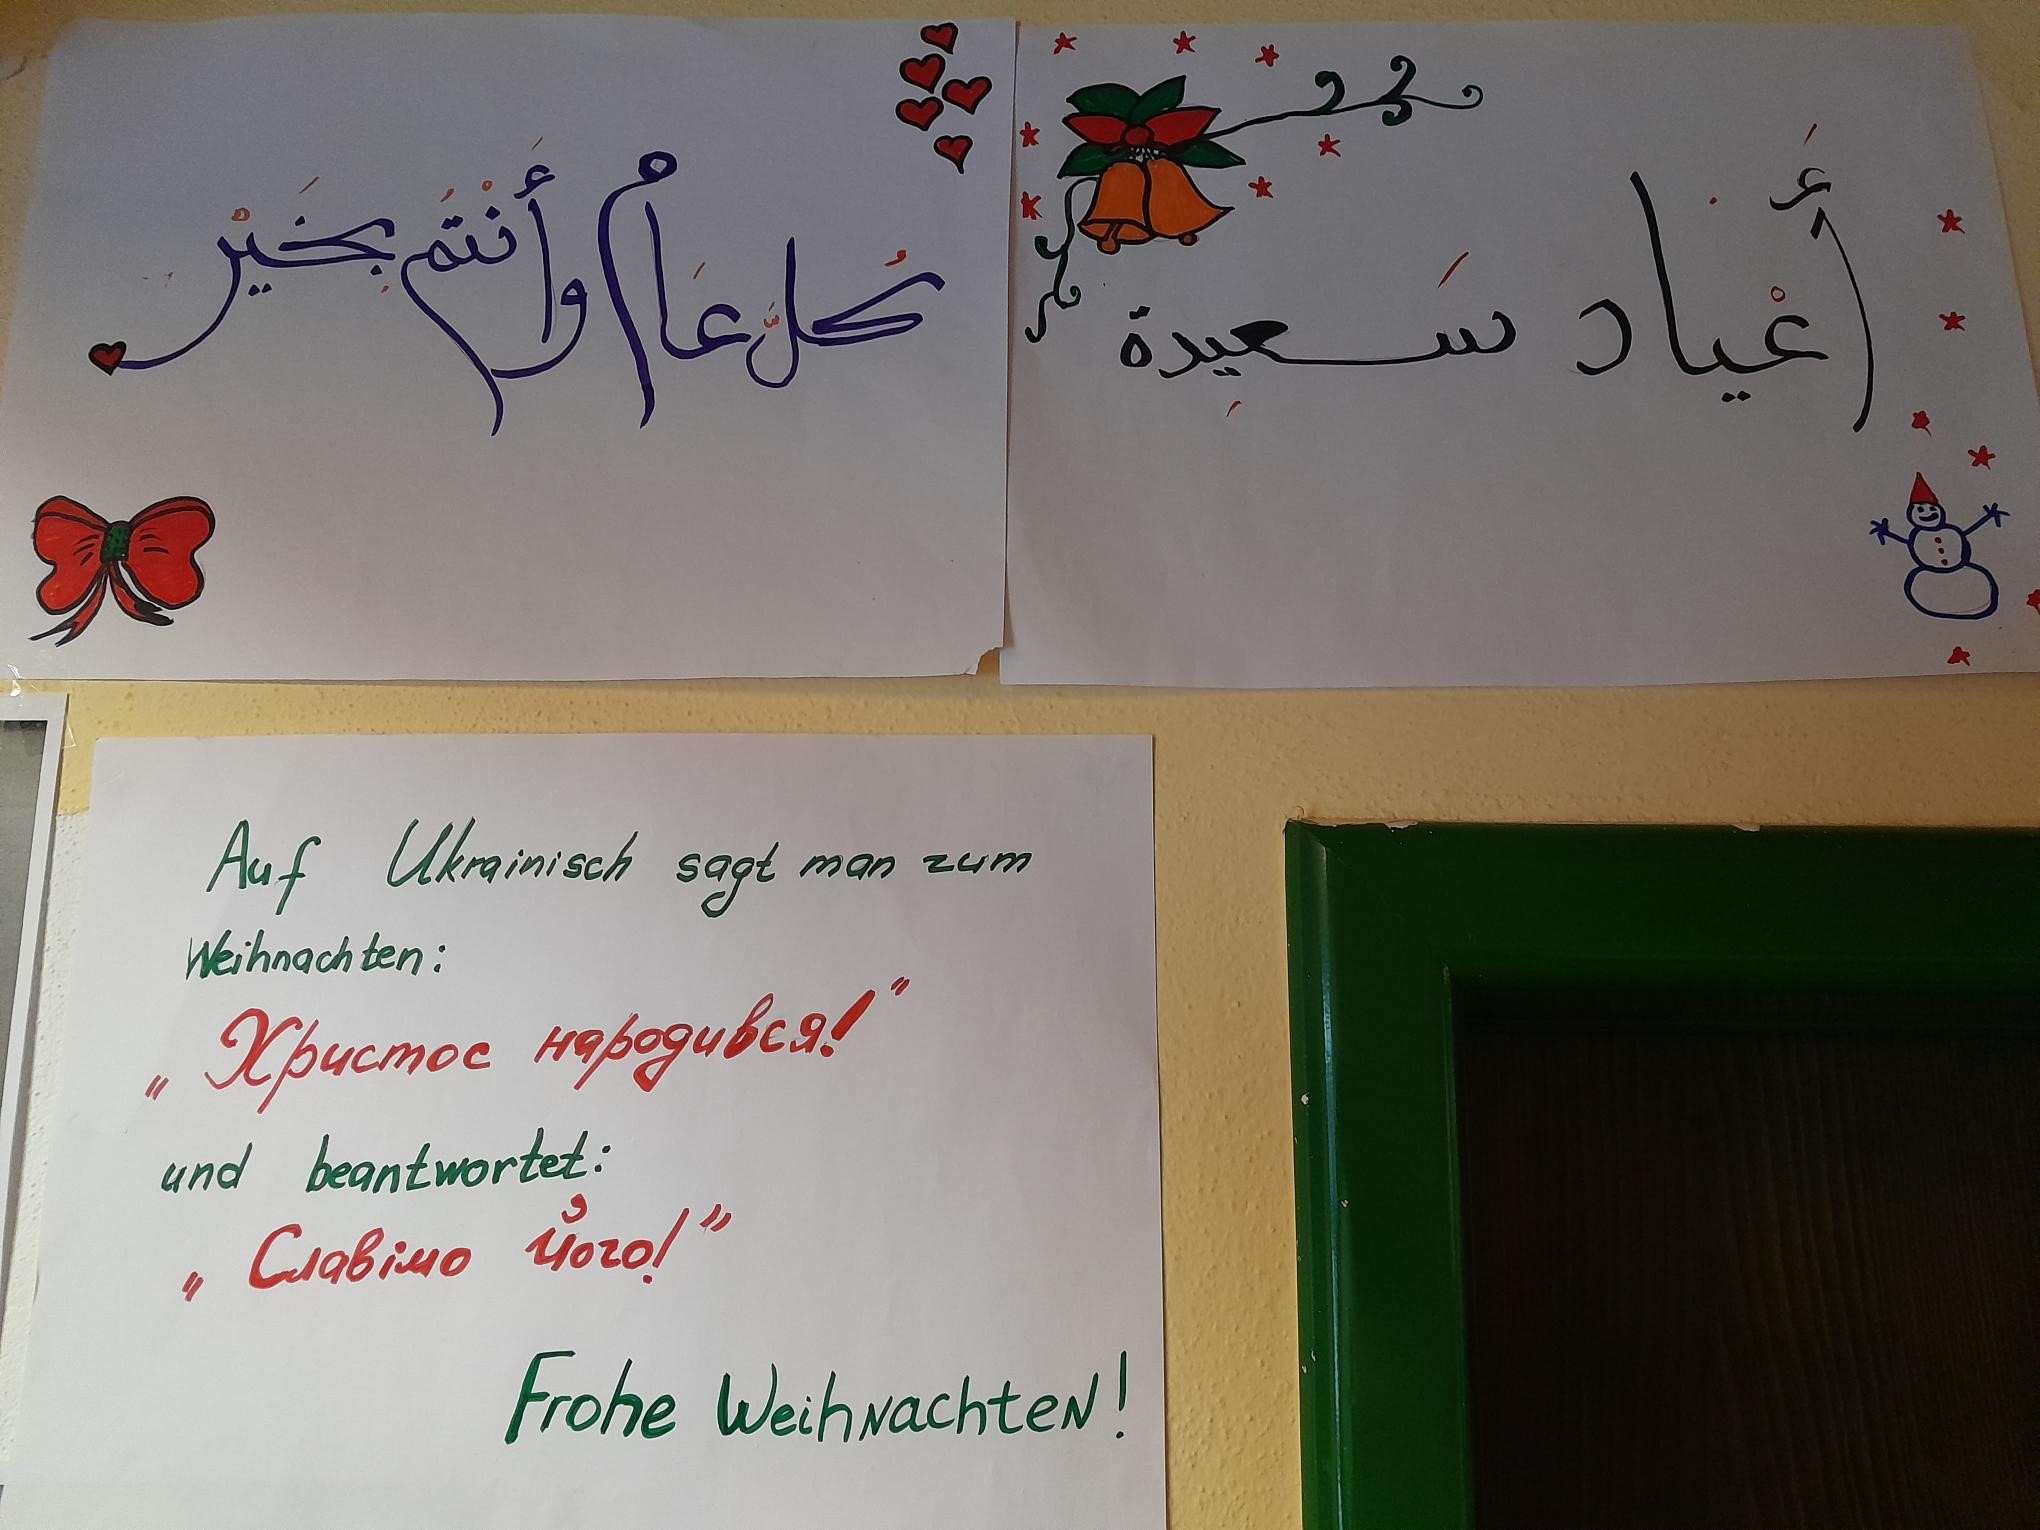 كُلُّ عَامٌ وأَنْتُم بِخَيْر
أَعْياد سَعِيدة
Auf Ukrainisch sagt man zum
Weihnachten:
„Христос народився!"
und beantwortet:
„Славімо його!"
Frohe Weihnachten!